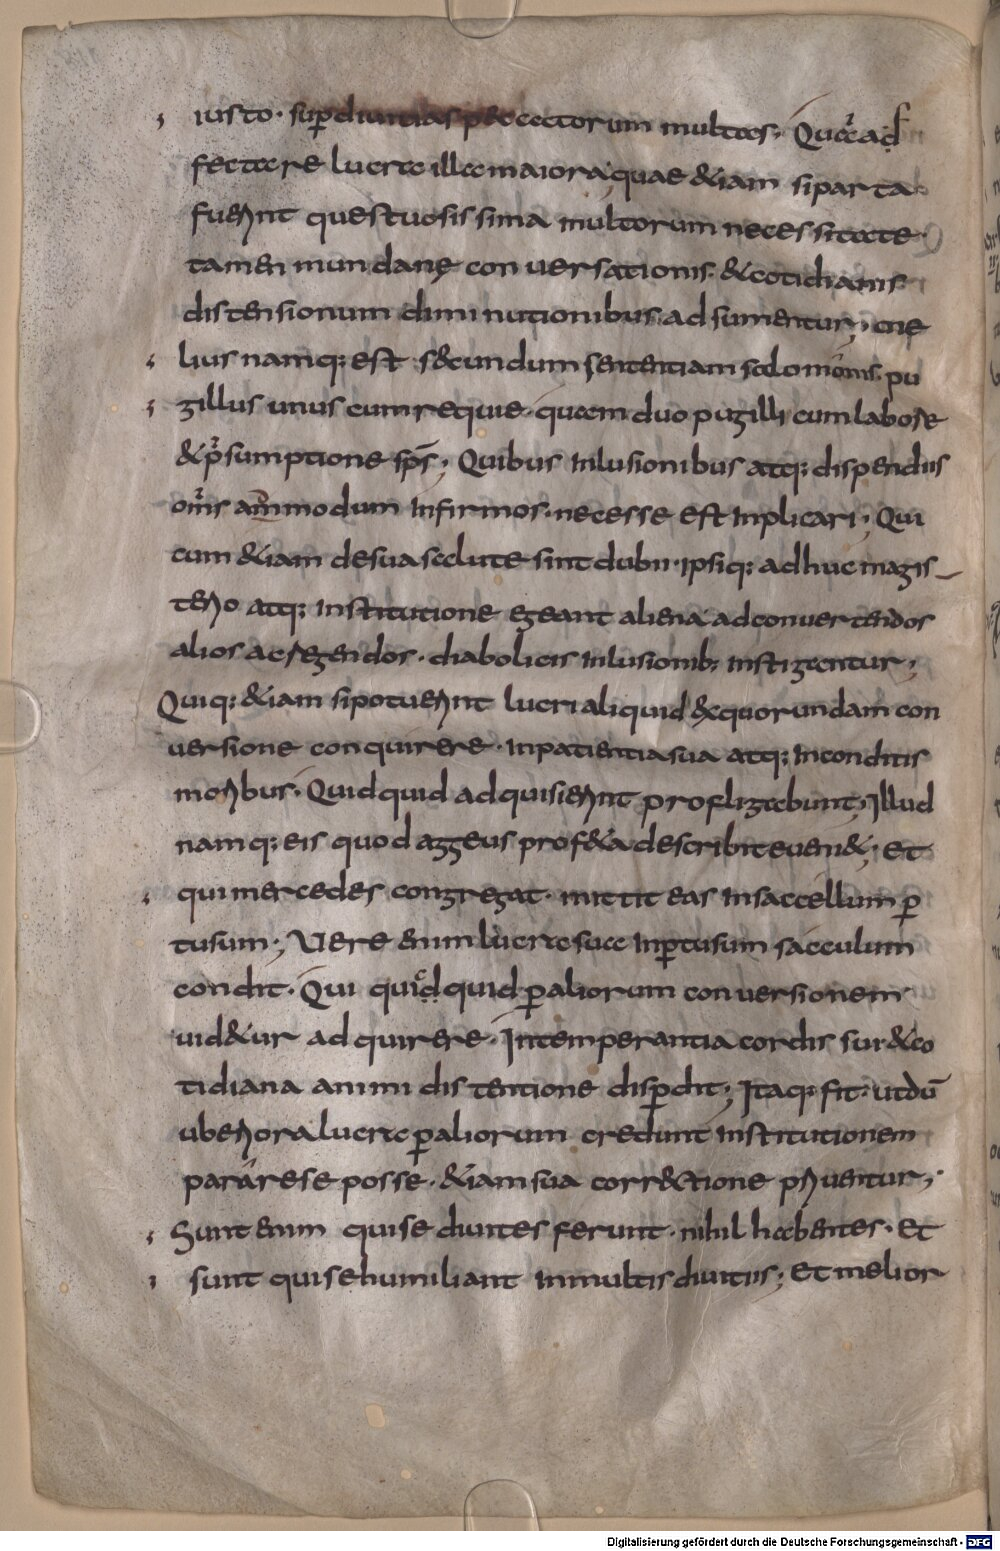 iusto · sup̄ diuitias peccatorum multas · Quę ad
fectare lucra illa maiora quae &iam si parta
fuerint questuosissima multorum necessitate
tamen mundanę conuersationis · & cotidianis
distensionum diminutionibus adsumentur ; me
lius namq: est · s&cundum sententiam salomonis · pu
gillus unus cum requie · quam duo pugilli cum labore
& p̄sumptione sp̄s ; Quibus inlusionibus atq: dispendiis
om̄is ammodum infirmos · necesse est inplicari ; Qui
cum &iam de sua salute sint dubii · ipsiq: adhuc magis
terio atq: institutione egeant aliena ad conuertendos
alios ac regendos · diabolicis inlusionib: instigantur ;
Quiq: &iam si potuerint lucri aliquid & quorundam con
uersione conquirere · inpatientia sua atq: inconditis
moribus · Quidquid adquisierint profligabunt ; Illud
namq: eis quod aggeus prof&a describit eueni& ; Et
qui mercedes congregat · mittit eas in saccellum p̱
tusum ; Vere enim lucra sua inp̱tusum sacculum
condit · Qui quidquid p̱ aliorum conuersionem
uid&ur adquirere · Intemperantia cordis sui & co
tidiana animi distentione disp̱dit ; Itaq: fit · ut dū
uberiora lucra p̱ aliorum credunt institutionem
parare se posse · &iam sua corr&ctione priuentur ;
Sunt enim qui se diuites ferunt · nihil habentes · Et
sunt qui se humiliant in multis diuitiis ; Et melior
Digitalisierung gefördert durch die Deutsche Forschungsgemeinschaft - DFG